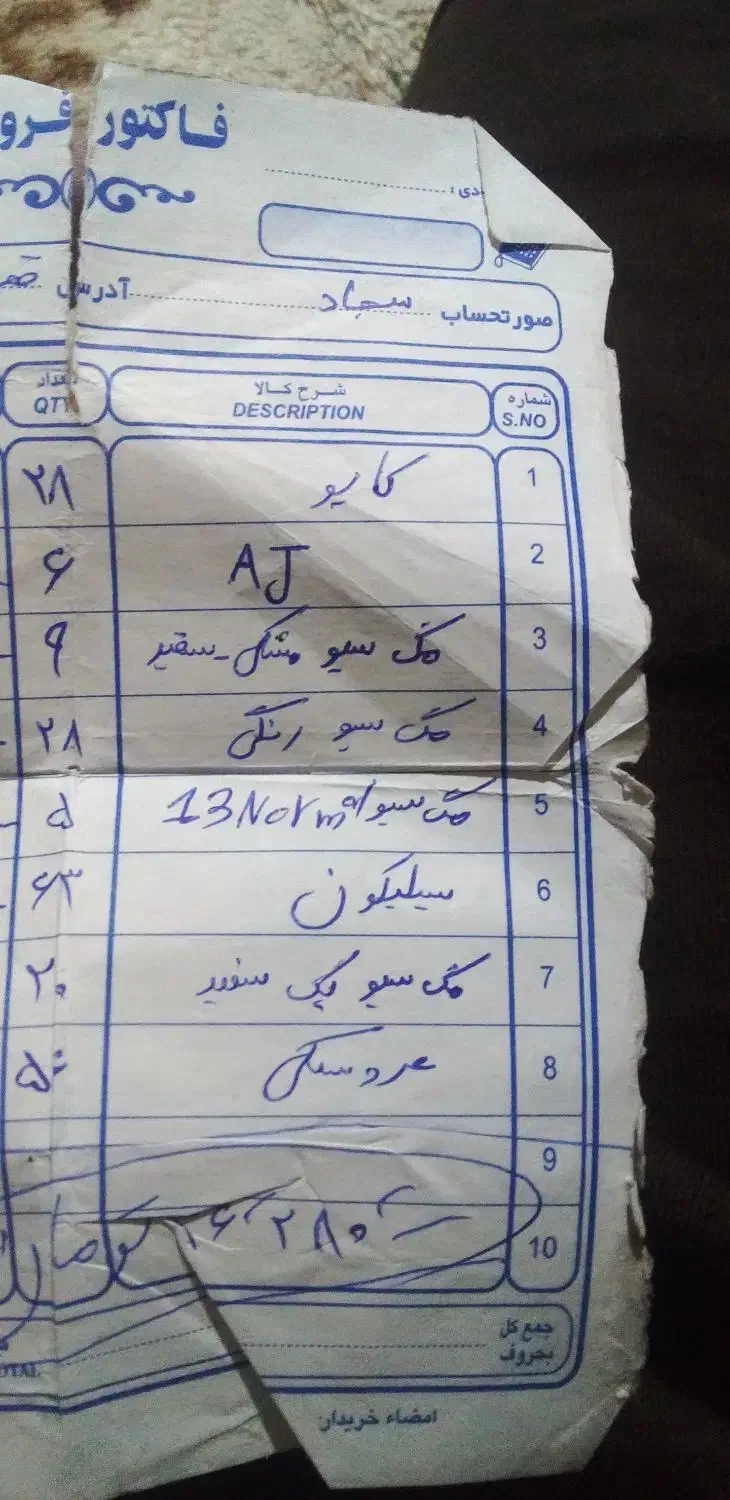 فاکتور فرو
دی:
صورتحساب سجاد آدرس
شماره S.NO شرح کالا DESCRIPTION تعداد QTY
1 کاپو ۲۸
2 AJ ۶
3 مگ سیو مشکی-سفید ۹
4 مگ سیو رنگی ۲۸
5 مگ سیو 13Normal ۵
6 سیلیکون ۶۳
7 مگ سیو پک سفید ۲۰
8 عروسکی ۵۰
9
10
جمع کل بحروف
OTAL
امضاء خریدار